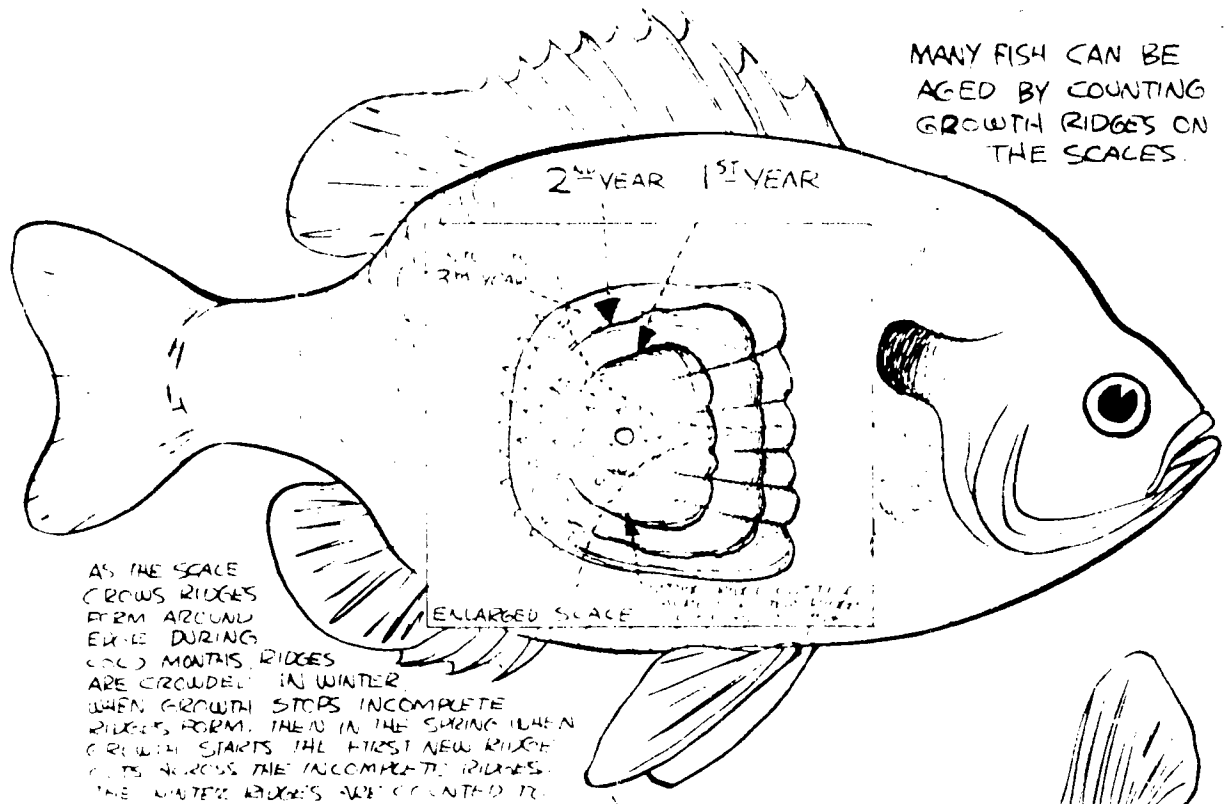 MANY FISH CAN BE
AGED BY COUNTING
GROWTH RIDGES ON
THE SCALES.
2ND YEAR 1ST YEAR
YEAR
ENLARGED SCALE
AS THE SCALE
GROWS RIDGES
FORM AROUND
EDGE DURING
COLD MONTHS RIDGES
ARE CROWDED IN WINTER
WHEN GROWTH STOPS INCOMPLETE
RIDGES FORM. THEN IN THE SPRING WHEN
GROWTH STARTS THE FIRST NEW RIDGE
ACROSS THE INCOMPLETE RIDGES.
THE WINTER RIDGES ARE COUNTED